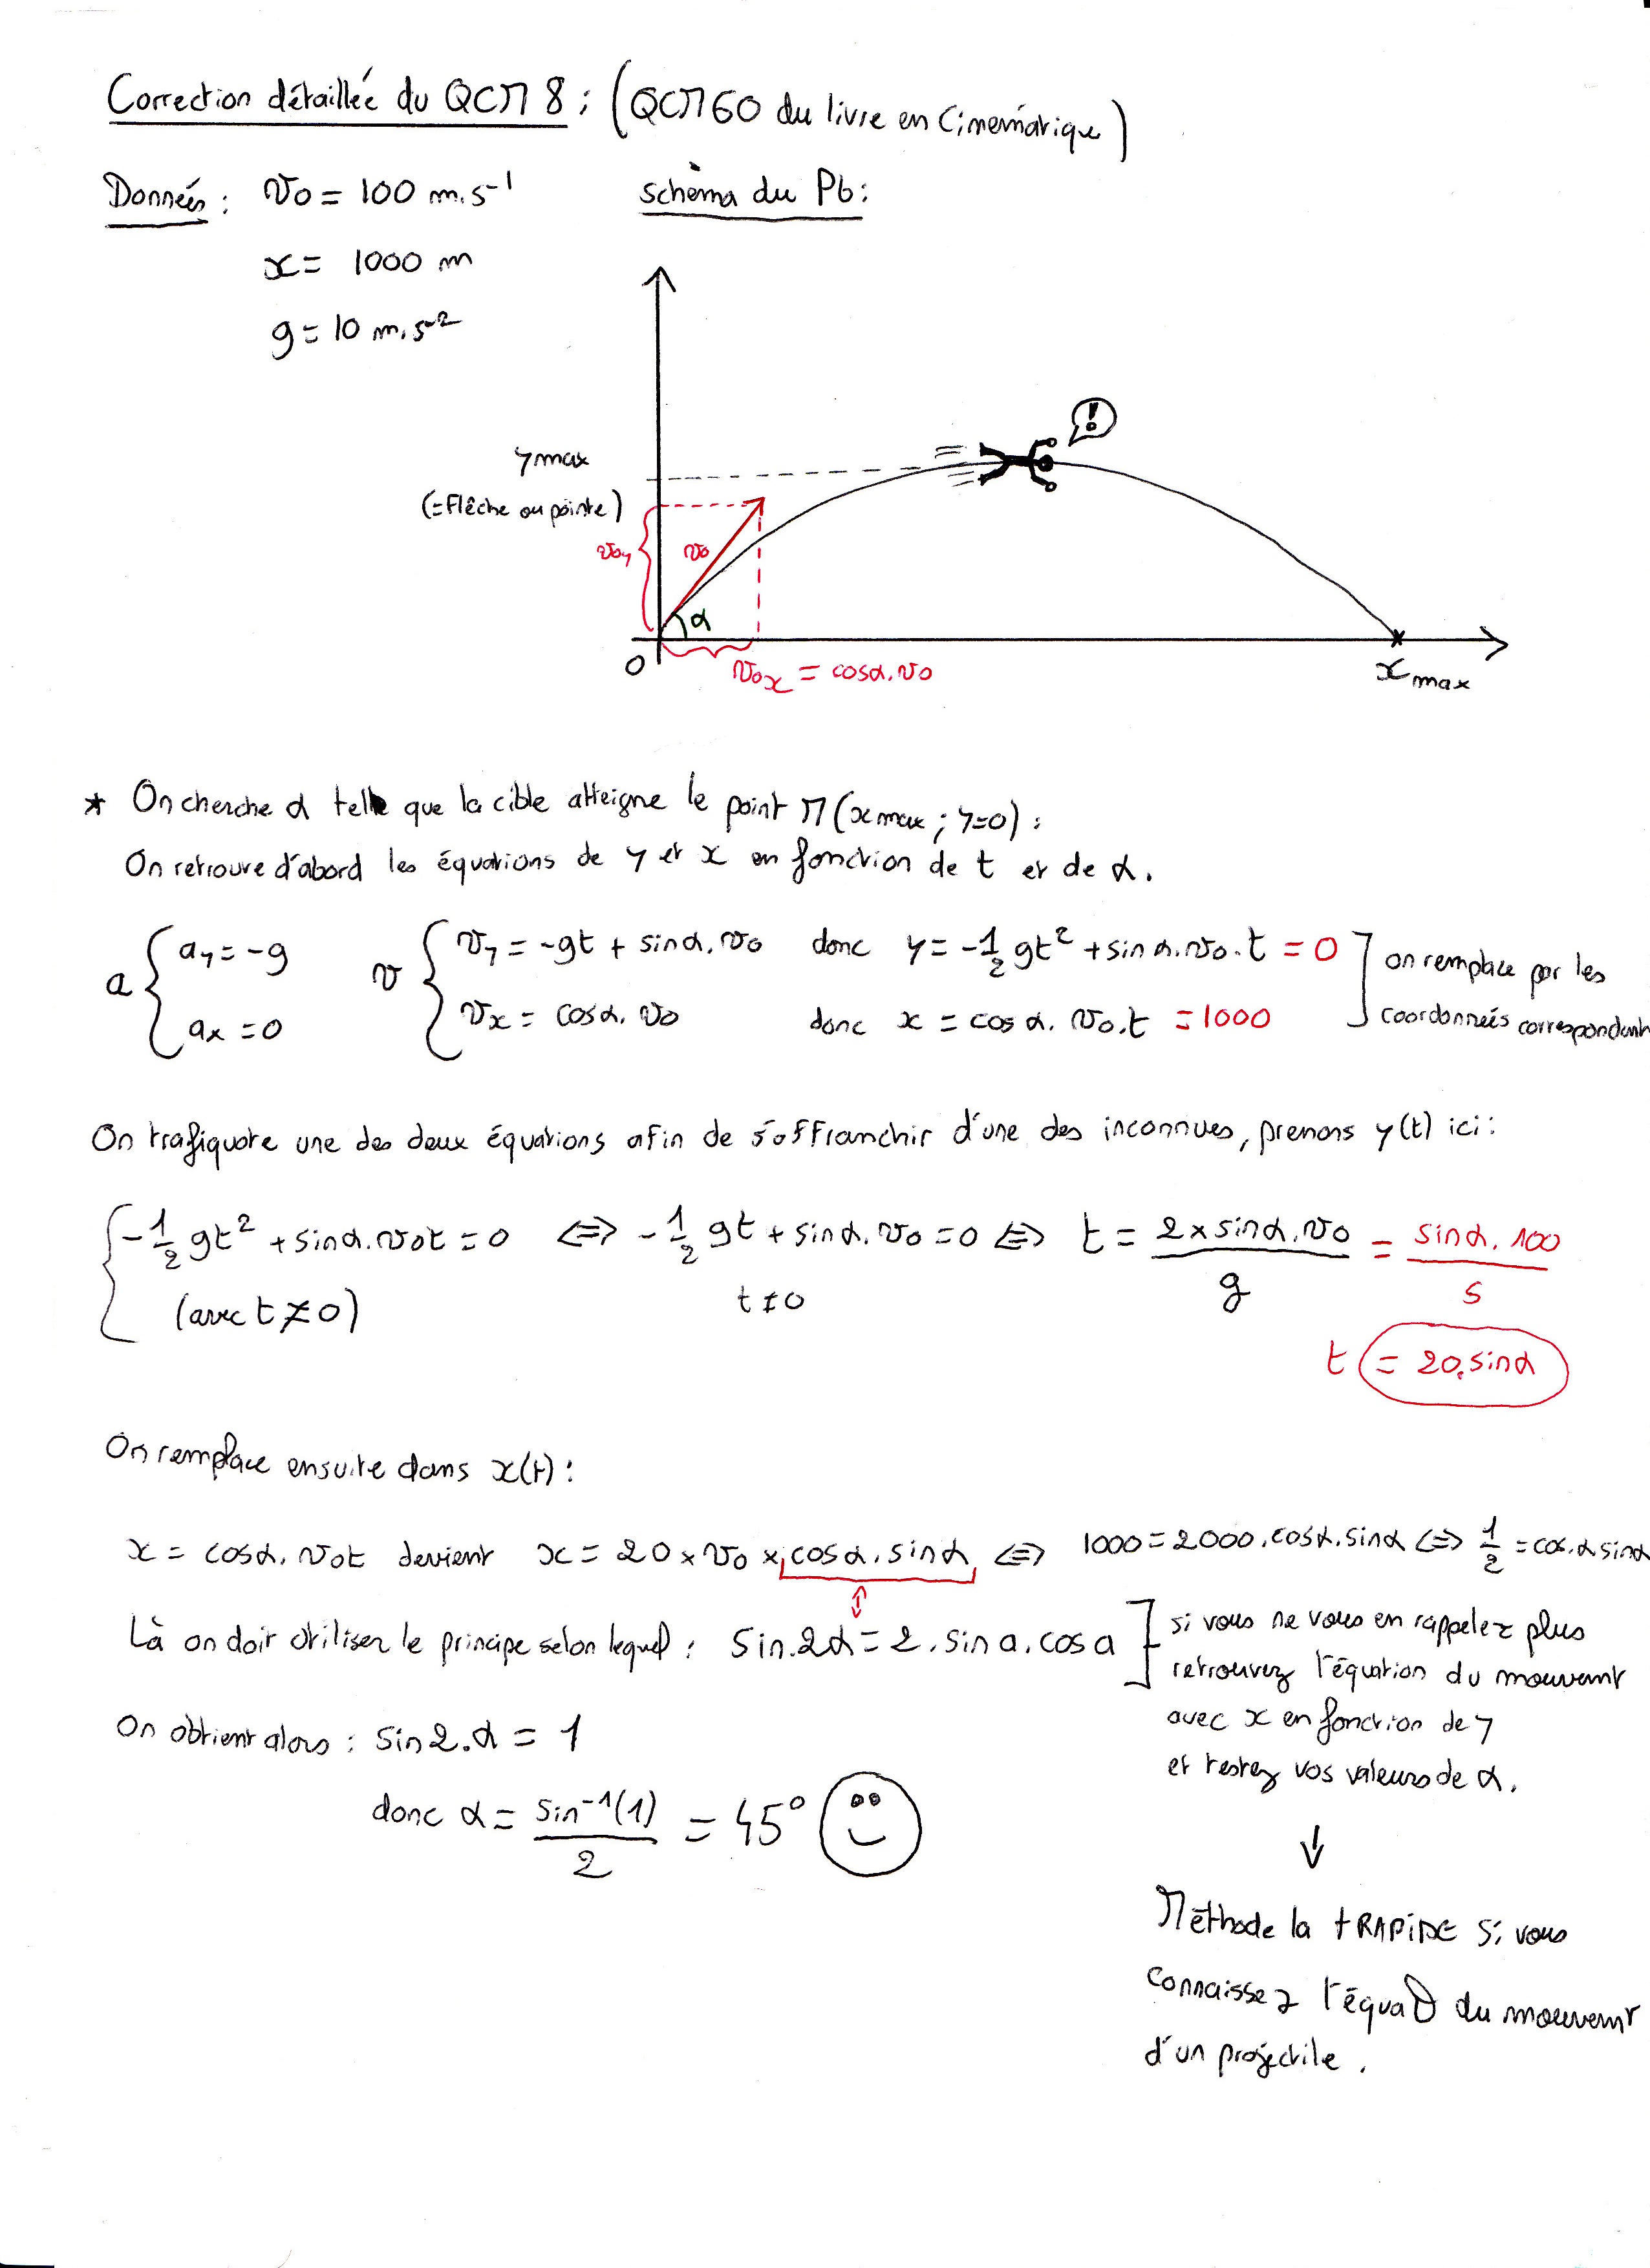 Correction détaillée du QCM 8 : (QCM 60 du livre en Cinématique)
Données : v0 = 100 m.s⁻¹
schéma du Pb :
x = 1000 m
g = 10 m.s⁻²
!
ymax
(= Flèche ou pointe)
v0y
v0
α
O
v0x = cosα.v0
xmax
* On cherche α telle que la cible atteigne le point M (xmax ; y=0) :
On retrouve d'abord les équations de y et x en fonction de t et de α.
a { ay = -g v { vy = -gt + sinα.v0 donc y = -1/2 gt² + sinα.v0.t = 0 ] on remplace par les
ax = 0 vx = cosα.v0 donc x = cosα.v0.t = 1000 coordonnées correspondant
On trafiquote une des deux équations afin de s'affranchir d'une des inconnues, prenons y(t) ici :
{ -1/2 gt² + sinα.v0t = 0 ⟺ -1/2 gt + sinα.v0 = 0 ⟺ t = 2×sinα.v0 / g = sinα.100 / 5
(avec t ≠ 0) t ≠ 0
t = 20.sinα
On remplace ensuite dans x(t) :
x = cosα.v0t devient x = 20 × v0 × cosα.sinα ⟺ 1000 = 2000.cosα.sinα ⟺ 1/2 = cos.α sinα
Là on doit utiliser le principe selon lequel : sin.2α = 2.sin a.cos a ] si vous ne vous en rappelez plus
retrouvez l'équation du mouvement
avec x en fonction de y
et testez vos valeurs de α.
On obtient alors : sin2.α = 1
donc α = sin⁻¹(1) / 2 = 45°
↓
Méthode la + RAPIDE si vous
connaissez l'équa° du mouvement
d'un projectile.